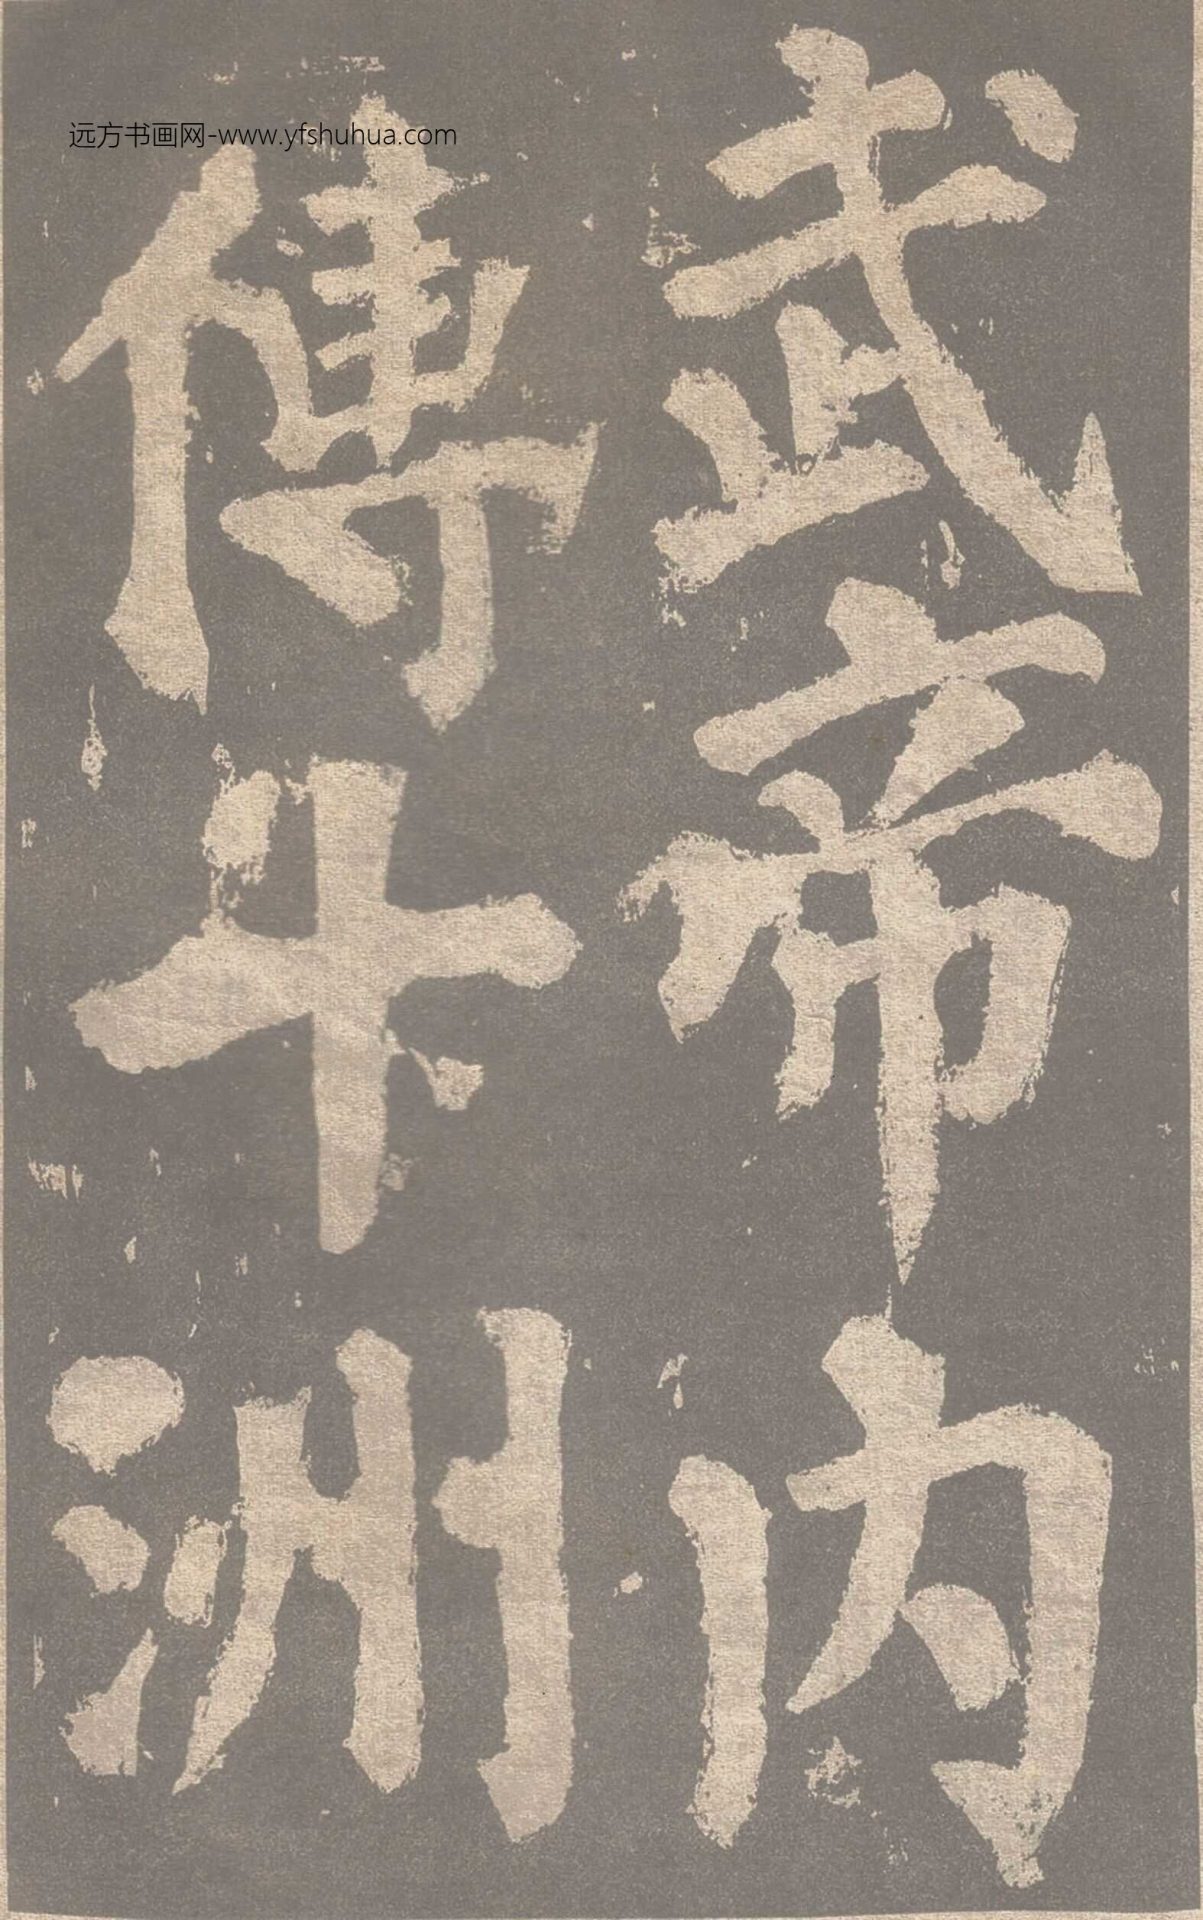 武帝内
傳十洲
远方书画网-www.yfshuhua.com